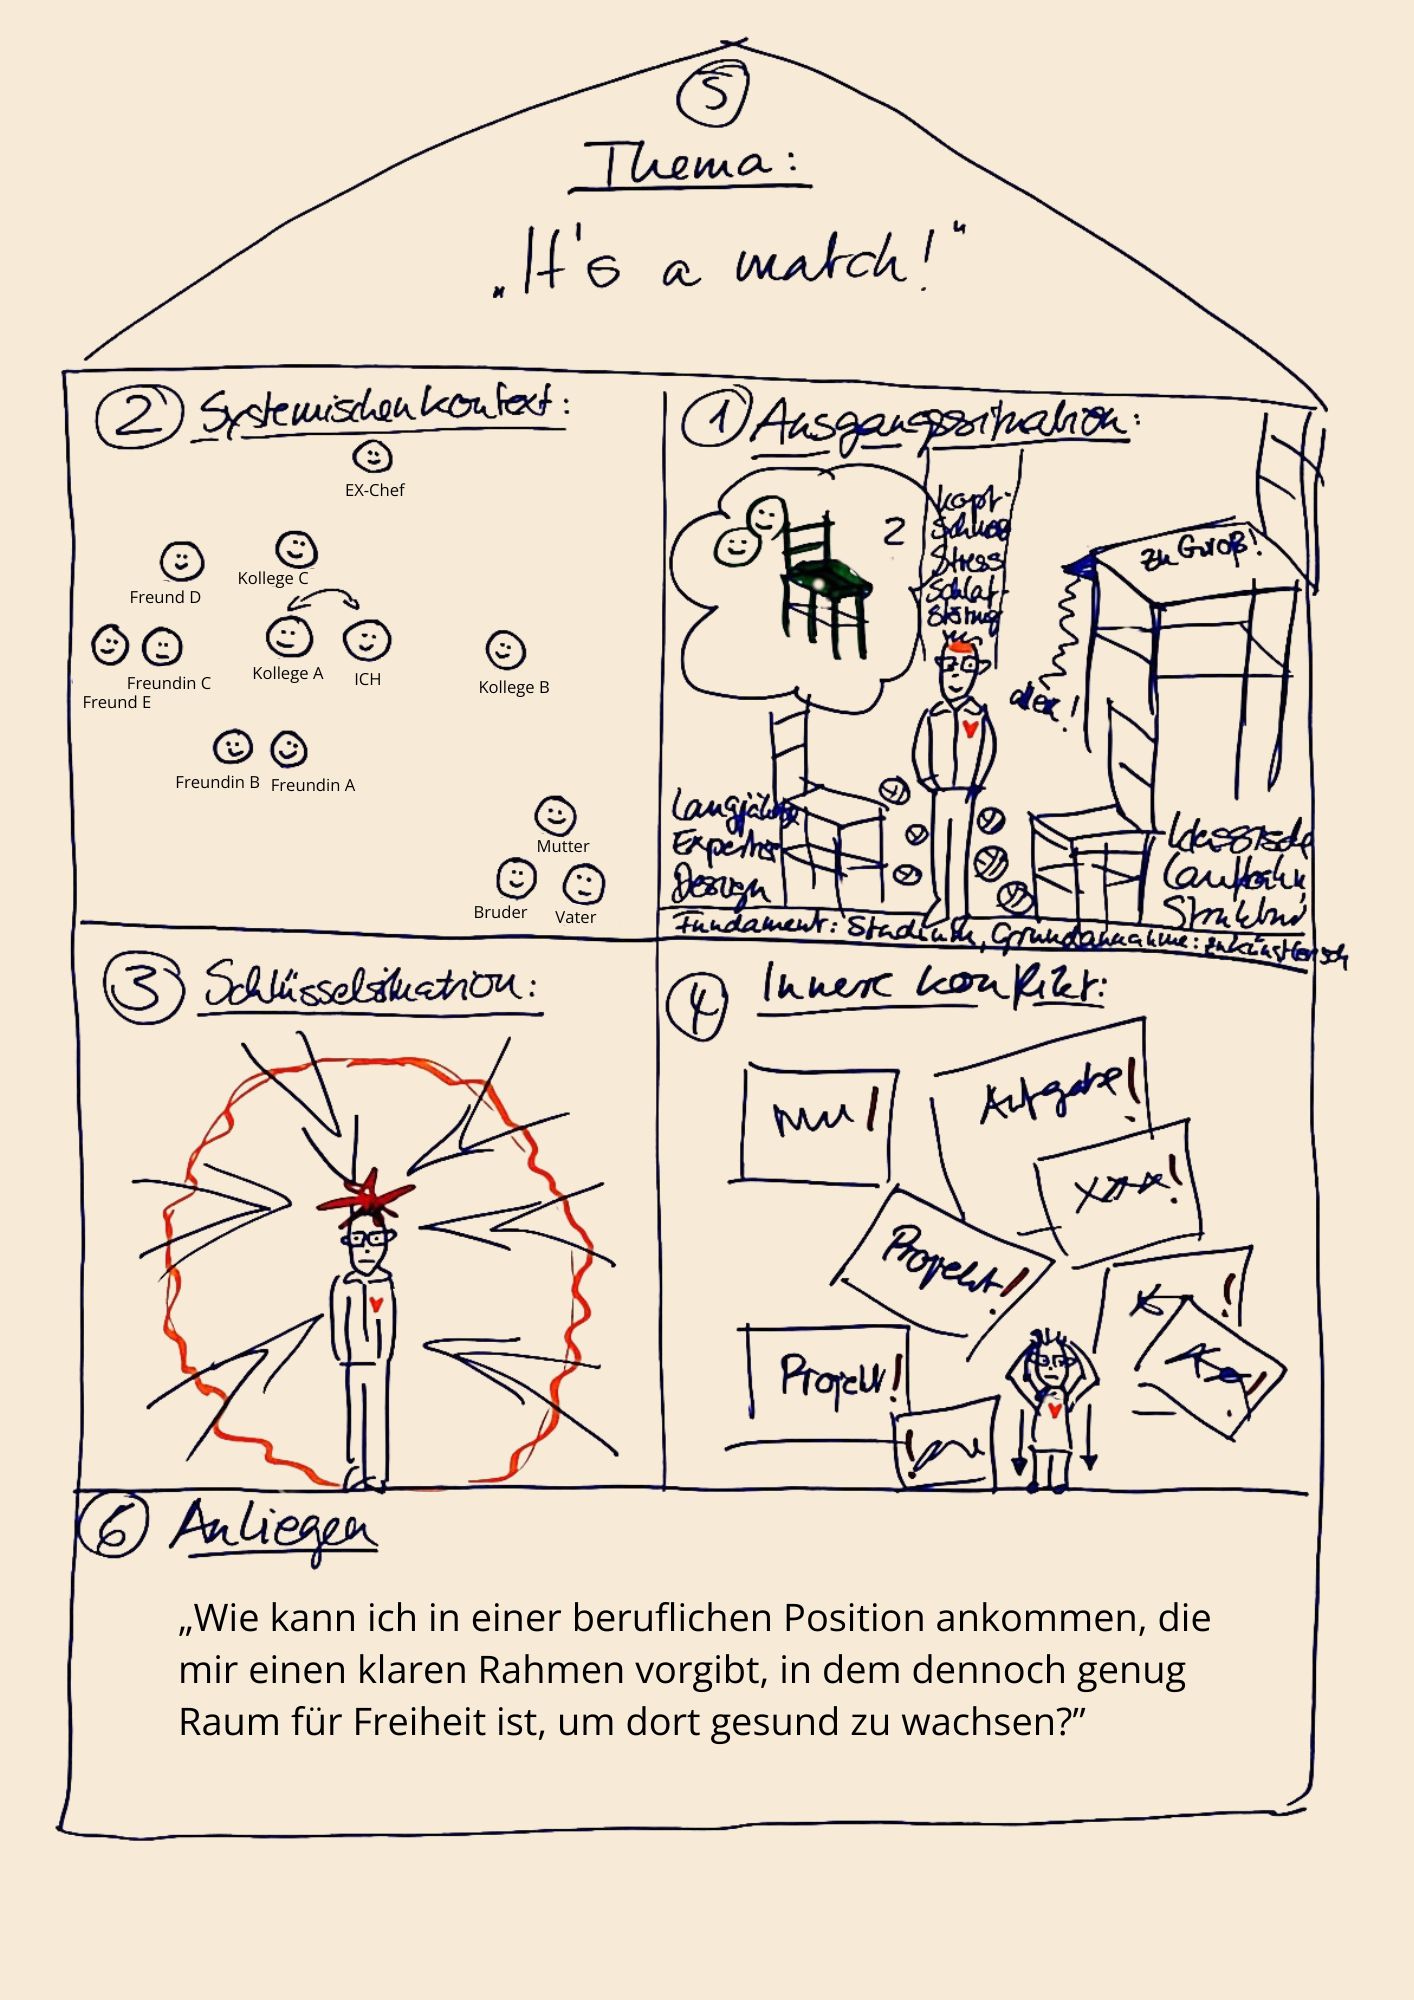 5
Thema:
„It's a match!“
2 Systemischenkontext:
EX-Chef
Kollege C
Freund D
Kollege A
ICH
Kollege B
Freundin C
Freund E
Freundin B
Freundin A
Mutter
Bruder
Vater
1 Ausgangssituation:
2
Kopf-
Stress
Schlaf-
Störung
zu Groß!
Langjährige
Expertise
Design
Klassische
Laufbahn
Fundament: Studium, Grundannahme: zu künstlerisch
3 Schlüsselsituation:
4 Innere Konflikt:
Aufgabe!
Projekt!
Projekt!
6 Anliegen
„Wie kann ich in einer beruflichen Position ankommen, die
mir einen klaren Rahmen vorgibt, in dem dennoch genug
Raum für Freiheit ist, um dort gesund zu wachsen?”